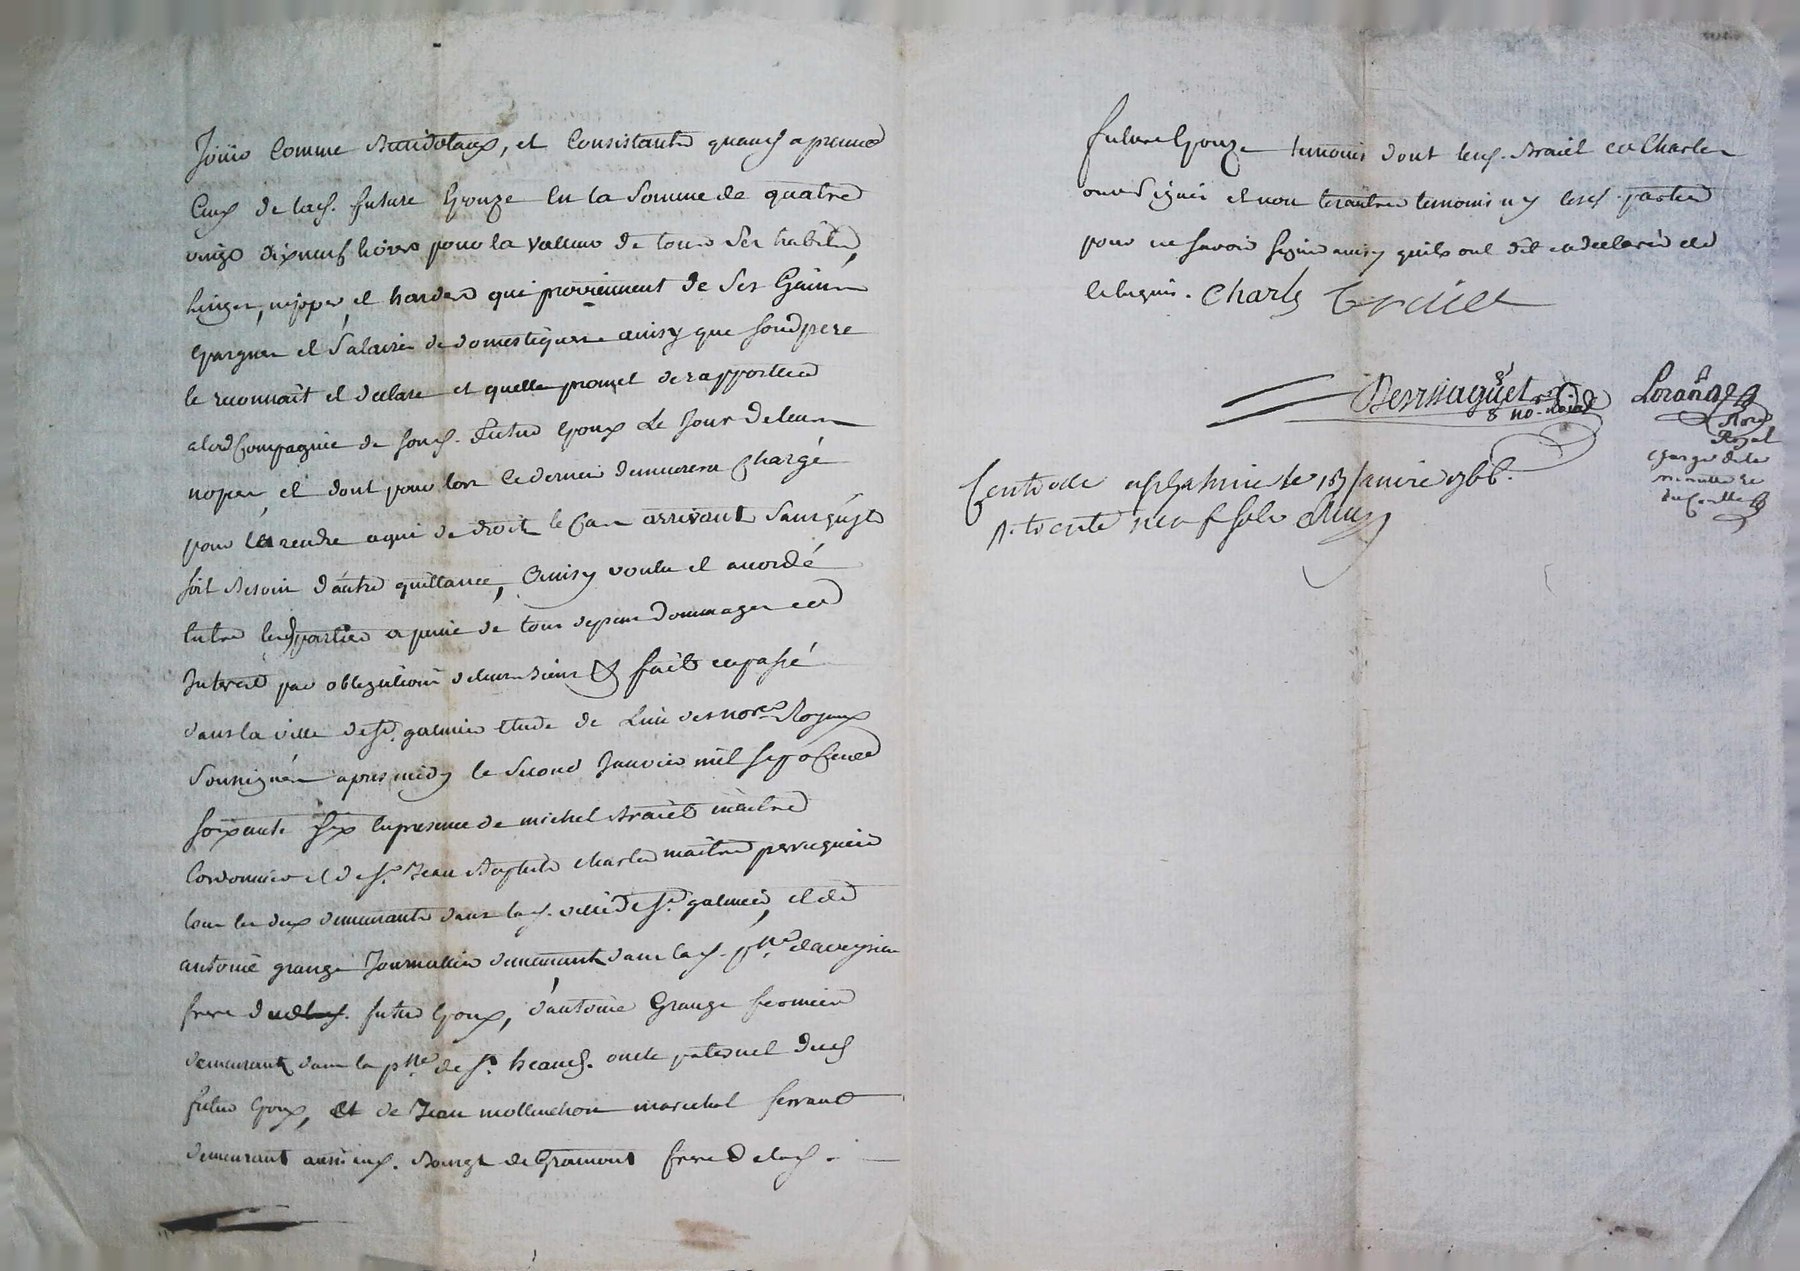 Joüir Comme Antidotaux, et Consistants quand a present
Ceux de lad. future Epouze En la Somme de quatre
vingt dixneuf livres pour la valleur de tous Ses habits,
linges, nippes, et hardes qui proviennent de Ses Gains
Epargnes et Salaires de domestiques ainsy que Sond pere
le reconnoit et declare et quelle promet de rapporter
a la Compagnie de Sond. futur Epoux Le Jour de leurs
nopces, et dont pour lors Ce dernier demeurera Chargé
pour les rendre a qui de droit le Cas arrivant Sans quil
soit Besoin d'autre quittance, Ainsy voulu et accordé
Entre lesd parties a peine de tous depens dommages et
Interets par obligations de leurs biens & fait et passé
dans la ville de St. galmier Etude de L'un des nores Royaux
Soussignés apres midy le Second Janvier mil Sept Cent
Soixante Six En presence de michel Araict maitre
Cordonnier et de Sr. Jean Baptiste Charles maitre perruquier
tous les deux demeurants dans lad. ville de St. galmier, et de
antoine grange Journallier demeurant dans lad. psse.
frere dud. futur Epoux, d'antoine Grange fermier
demeurant dans la psse de St. heand. oncle paternel dud
futur Epoux, Et de Jean mollinchon marechal ferrant
demeurant aussi aud. Bourgt de Gramont frere de lad.
future Epouze temoins dont lesd. Araict et Charles
ont Signé et non les autres temoins ny lesd. parties
pour ne Savoir Signer ainsy quils ont dit et declaré de
ce Enquis. Charles Araict
no. Roial
Nore
Royal
Chargé de la
minutte et
du Conlle
Controllé a St galmier le 13 Janvier 1766.
R. trente neuf Sols